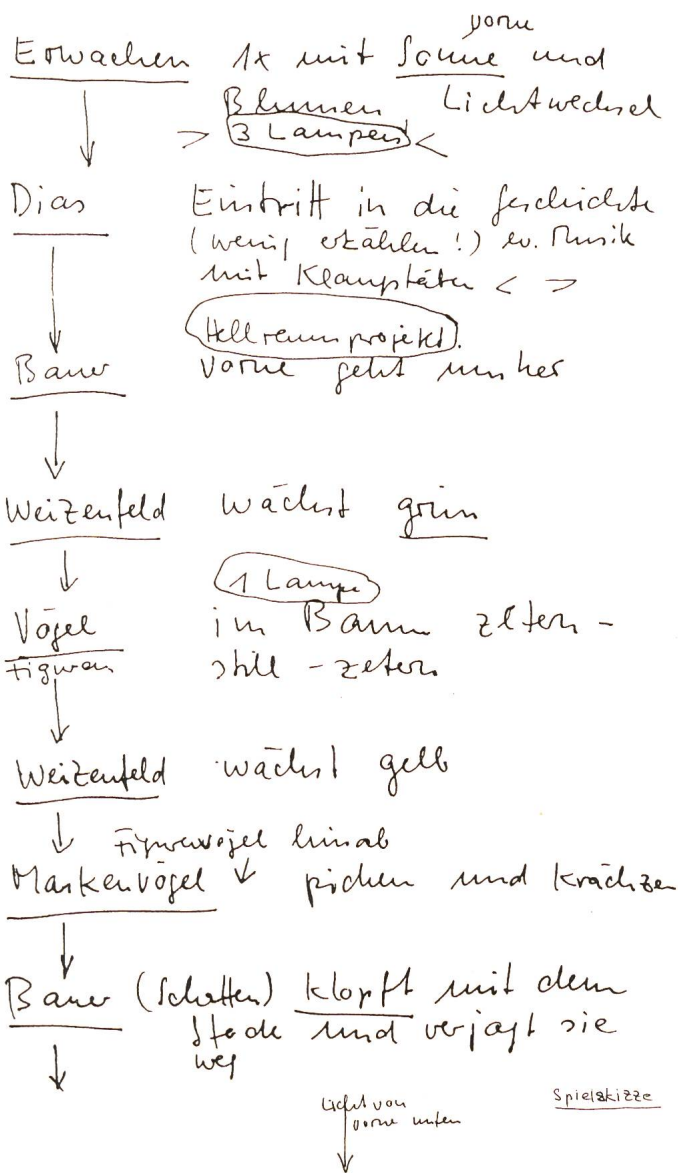 vorne
Erwachen 1x mit Sonne und
Blumen Lichtwechsel
> 3 Lampen <
Dias Eintritt in die Geschichte
(wenig erzählen!) ev. Musik
mit Klangstäben < >
Hellraumprojekt.
Bauer vorne geht umher
Weizenfeld wächst grün
1 Lampe
Vögel im Baum zetern -
Figuren still - zetern
Weizenfeld wächst gelb
Figurenvögel hinab
Maskenvögel picken und krächzen
Bauer (Schatten) klopft mit dem
Stock und verjagt sie
weg
Licht von
vorne unten
Spielskizze